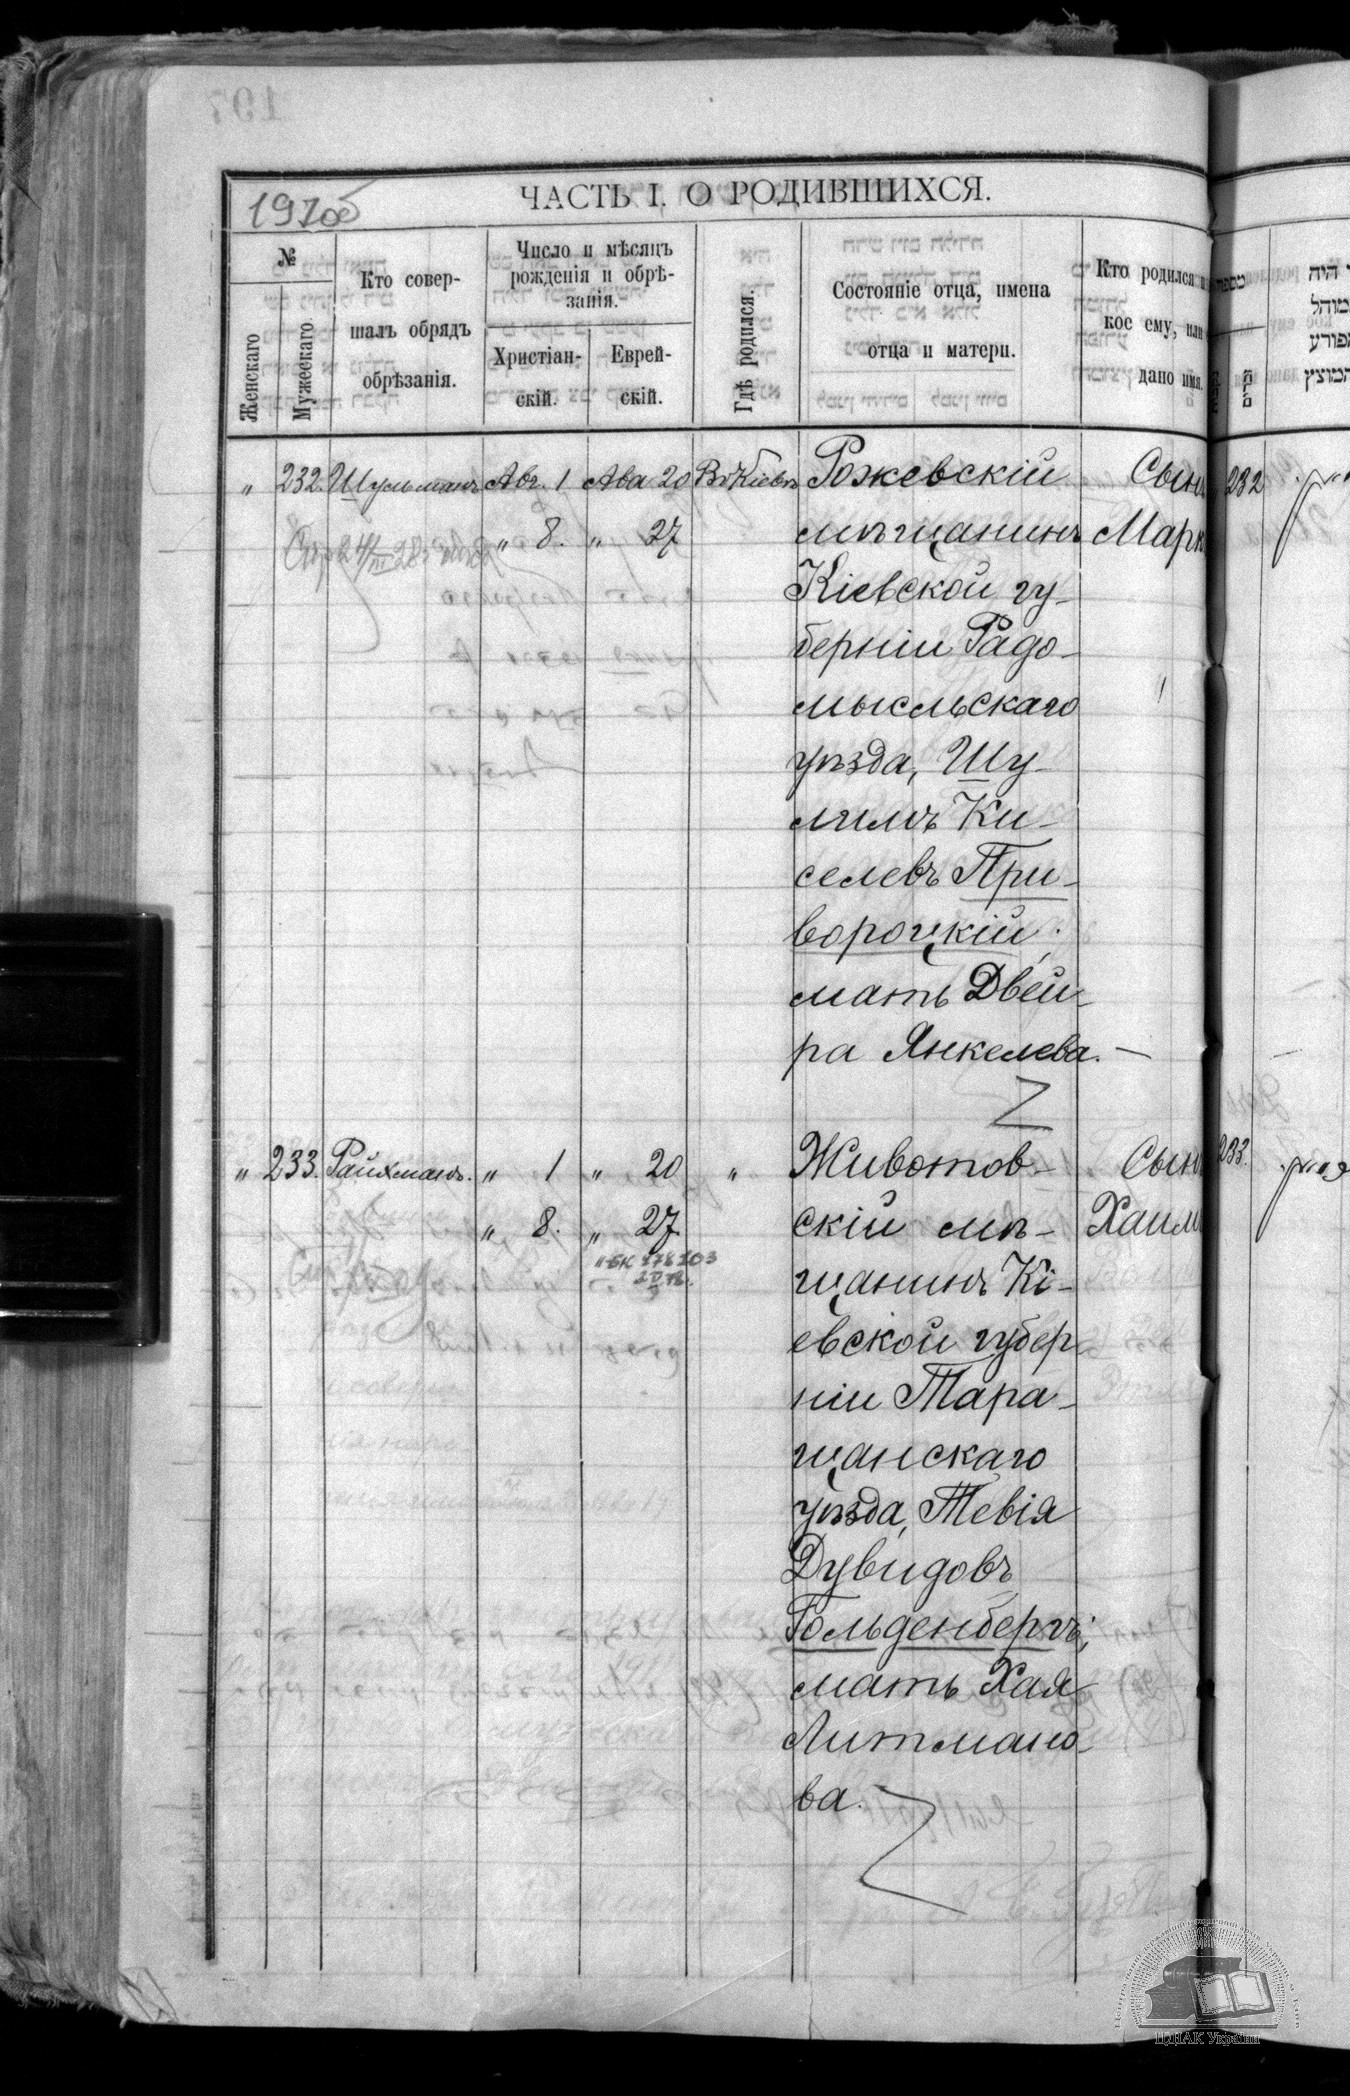 197об
ЧАСТЬ I. О РОДИВШИХСЯ.
№
Женскаго
Мужескаго
Кто совер-
шалъ обрядъ
обрѣзанія.
Число и мѣсяцъ
рожденія и обрѣ-
занія.
Христіан-
скій.
Еврей-
скій.
Гдѣ родился.
Состояніе отца, имена
отца и матери.
Кто родился и
кое ему, или
дано имя.
מספר
היה
מוהל
„ 232. Шульманъ Авг. 1 Ава 20 Въ Кіевѣ Рожевскій Сынъ 232
„ 8. „ 27 мѣщанинъ Марк
Кіевской гу-
берніи Радо-
мысльскаго
уѣзда, Шу-
лимъ Ки-
селевъ При-
вороцкій,
мать Двей-
ра Янкелева. —
„ 233. Райхманъ. „ 1 „ 20 „ Животов- Сын 233.
„ 8. „ 27 скій мѣ- Хаим
щанинъ Кі-
евской губер-
ніи Тара-
щанскаго
уѣзда, Тевія
Дувидовъ
Гольденбергъ,
мать Хая
Литмано-
ва.
ЦДІАК України